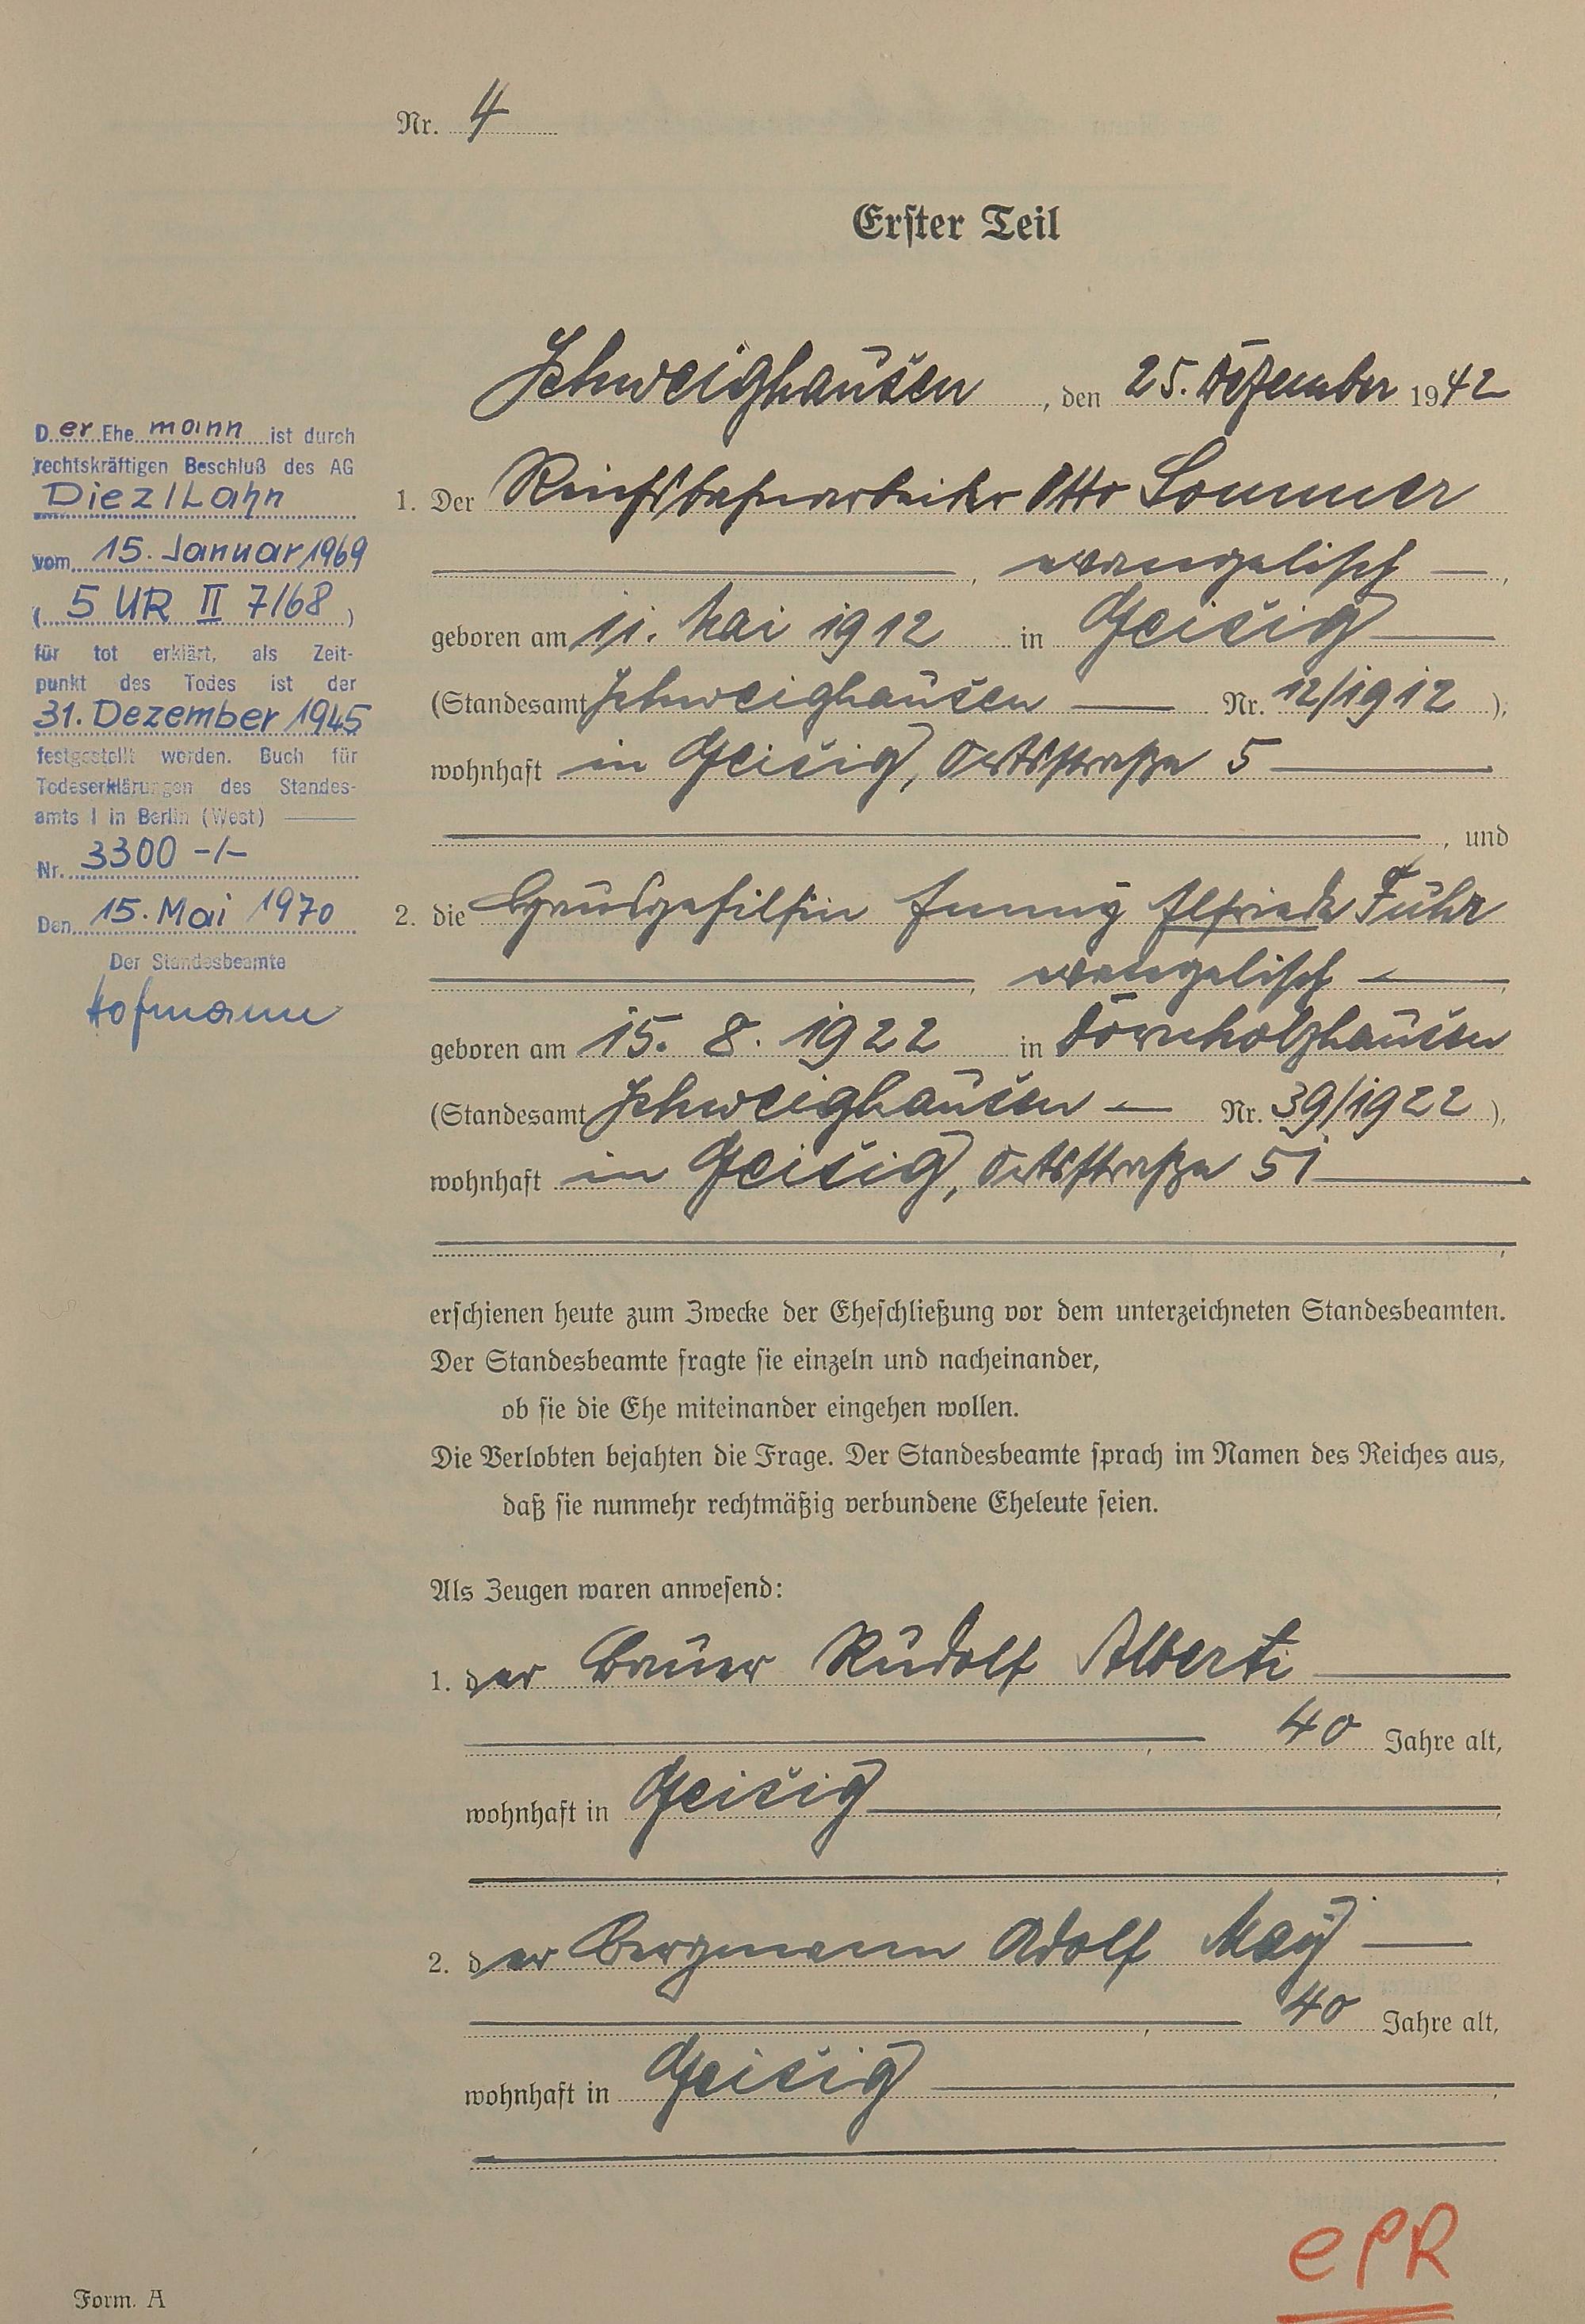 Nr. 4
Erster Teil
Schweighausen, den 25. Dezember 1942
1. Der Reichsbahnarbeiter Otto Sommer
, evangelisch —,
geboren am 11. Mai 1912 in Geisig
(Standesamt Schweighausen — Nr. 12/1912),
wohnhaft in Geisig, Ortsstraße 5
, und
2. die Hausgehilfin Fanny Elfriede Führ
, evangelisch —,
geboren am 15. 8. 1922 in Dornholzhausen
(Standesamt Schweighausen — Nr. 39/1922),
wohnhaft in Geisig, Ortsstraße 51
,
erschienen heute zum Zwecke der Eheschließung vor dem unterzeichneten Standesbeamten.
Der Standesbeamte fragte sie einzeln und nacheinander,
ob sie die Ehe miteinander eingehen wollen.
Die Verlobten bejahten die Frage. Der Standesbeamte sprach im Namen des Reiches aus,
daß sie nunmehr rechtmäßig verbundene Eheleute seien.
Als Zeugen waren anwesend:
1. der Bauer Rudolf Alberti
, 40 Jahre alt,
wohnhaft in Geisig
,
2. der Bergmann Adolf May
, 40 Jahre alt,
wohnhaft in Geisig,
ePR
Form. A
Der Ehemann ist durch
rechtskräftigen Beschluß des AG
Diez/Lahn
vom 15. Januar 1969
(5 UR II 7/68)
für tot erklärt, als Zeit-
punkt des Todes ist der
31. Dezember 1945
festgestellt worden. Buch für
Todeserklärungen des Standes-
amts I in Berlin (West) —
Nr. 3300 -/-
Den 15. Mai 1970
Der Standesbeamte
Hofmann